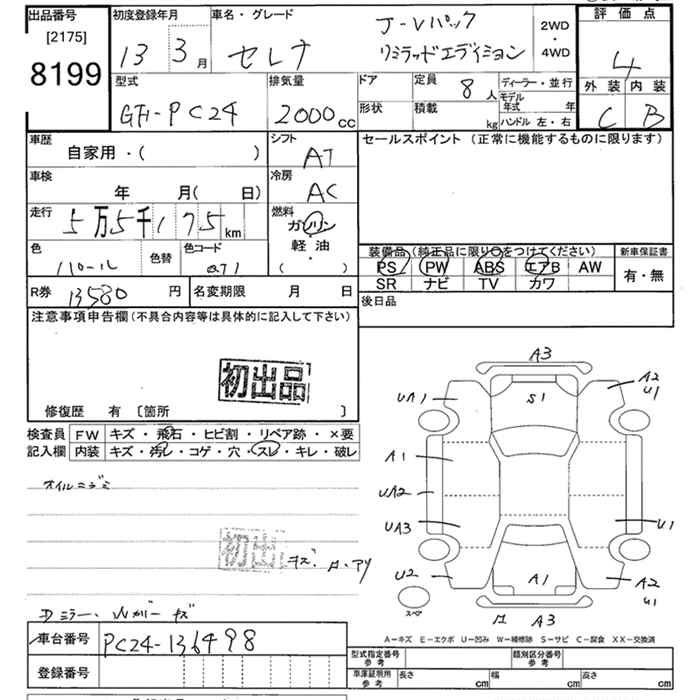 出品番号 初度登録年月 車名・グレード J-Vパック 2WD 評価点
[2175] 13 3月 セレナ リミテッドエディション ・ 4
8199 4WD
外装 内装
型式 排気量 ドア 定員 8人 ディーラー・並行 C B
GF-PC24 2000cc 形状 積載 kg モデル年式 年
ハンドル 左・右
車歴 シフト セールスポイント (正常に機能するものに限ります)
自家用・( ) AT
車検 冷房
年 月( 日) AC
走行 燃料
5万5千175km ガソリン
色 色替 色コード 軽油 装備品(純正品に限り○をつけてください) 新車保証書
パール ( ・ ) PS PW ABS エアB AW 有・無
SR ナビ TV カワ
R券 13580円 名変期限 月 日 後日品
注意事項申告欄(不具合内容等は具体的に記入して下さい)
初出品
修復歴 有 [箇所 ]
検査員 FW キズ・飛石・ヒビ割・リペア跡・×要
記入欄 内装 キズ・汚レ・コゲ・穴・スレ・キレ・破レ
オイルニジミ
初出
キズ・A・アリ
Dミラー、Wガリキズ
車台番号 PC24-136498
登録番号
A3
UA1 S1 A2
U1
A1
UA2
UA3 U1
U2 A1 A2
U1
スペア A3
A-キズ E-エクボ U-凹み W-補修跡 S-サビ C-腐食 XX-交換済
型式指定番号 参考 類別区分番号 参考
車庫証明用 参考 長さ cm 幅 cm 高さ cm